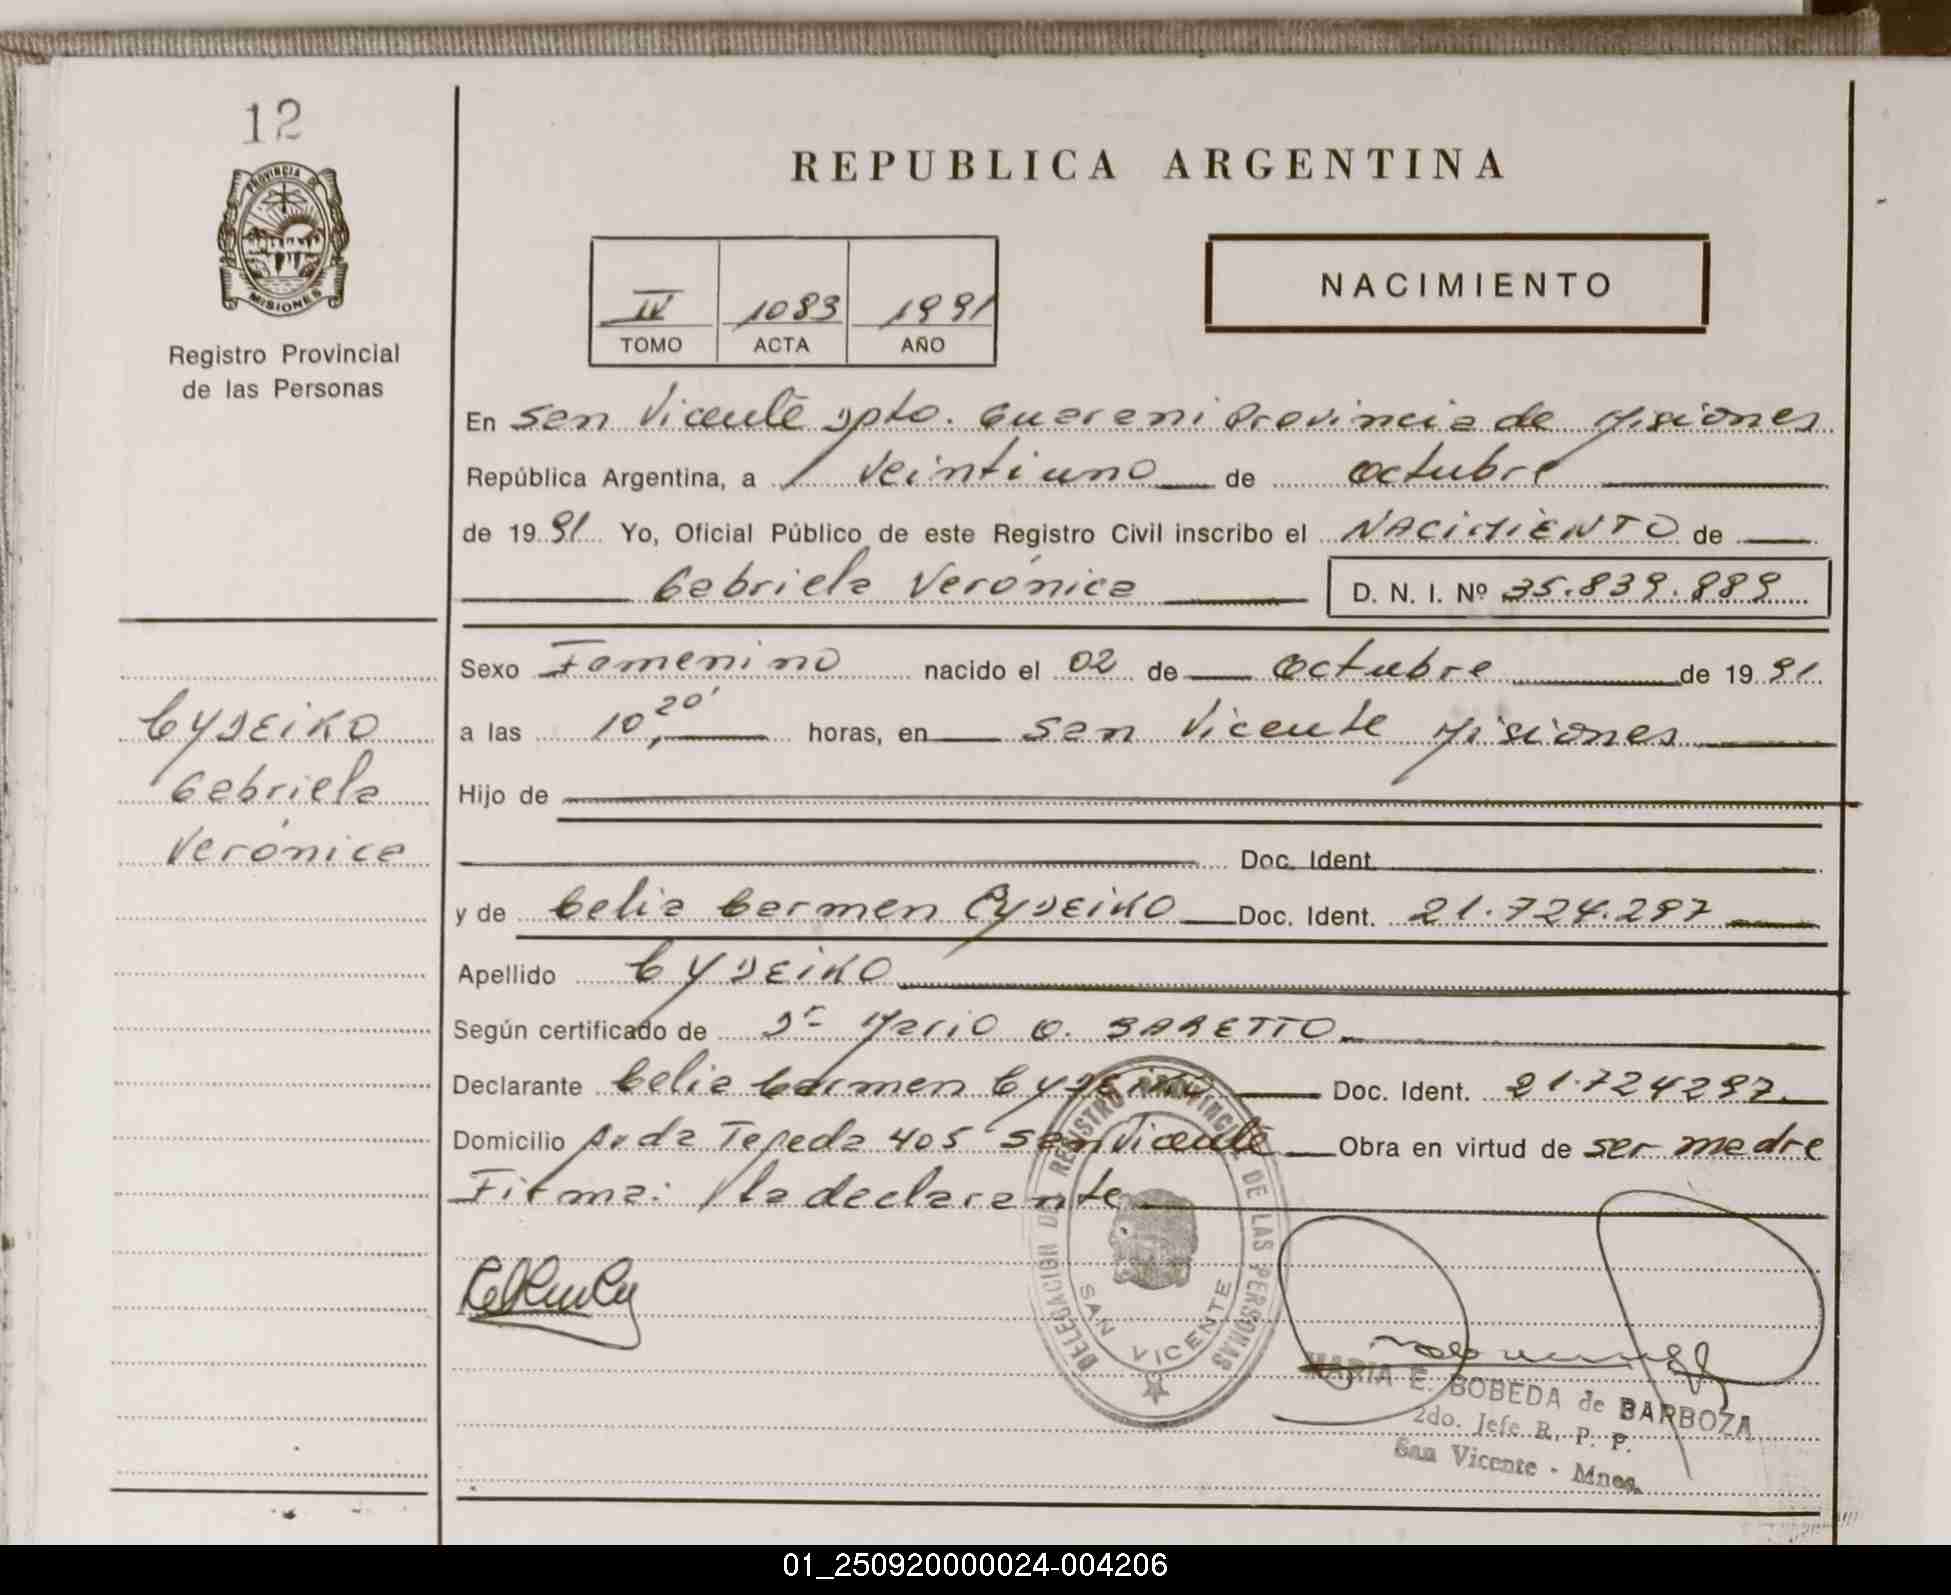 12
PROVINCIA DE
MISIONES
Registro Provincial
de las Personas
REPUBLICA ARGENTINA
IV 1083 1991
TOMO ACTA AÑO
NACIMIENTO
En San Vicente Dpto. Guarani Provincia de Misiones
República Argentina, a veintiuno de octubre
de 1991 Yo, Oficial Público de este Registro Civil inscribo el NACIMIENTO de
Gabriela Verónica D. N. I. Nº 35.839.889
Sexo Femenino nacido el 02 de octubre de 1991
a las 10,20' horas, en San Vicente Misiones
CYDEIKO
Gabriela
Verónica
Hijo de
Doc. Ident.
y de Celia Carmen CYDEIKO Doc. Ident. 21.724.297
Apellido CYDEIKO
Según certificado de Dr Mario O. BARETTO
Declarante Celia Carmen CYDEIKO Doc. Ident. 21.724297
Domicilio Avda Tejeda 405 San Vicente Obra en virtud de ser madre
Firma: la declarante
DELEGACION DEL REGISTRO PROVINCIAL DE LAS PERSONAS
SAN VICENTE
MARIA E. BOBEDA de BARBOZA
2do. Jefe R. P. P.
San Vicente - Mnes.
01_250920000024-004206